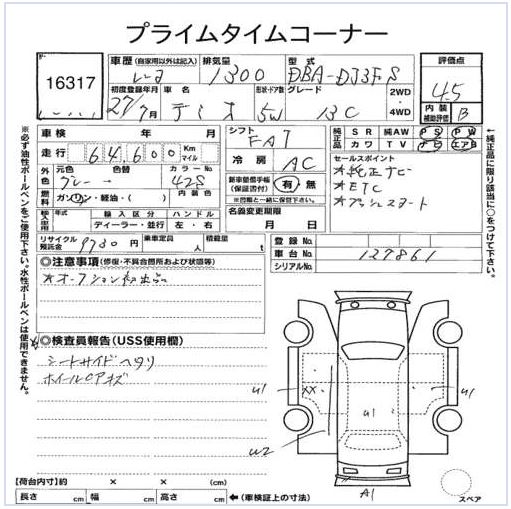 プライムタイムコーナー
16317
車歴 (自家用以外は記入)
レンタ
排気量
1300
型式
DBA-DJ3FS
評価点
4.5
内装補助評価 B
初度登録年月
27/7月
車名
デミオ
形状・ドア数
5W
グレード
13C
2WD
4WD
車検 年 月
シフト
FAT
純正品
SR 純AW PS PW
カワ TV ナビ エアB
走行 64,600 Km マイル
冷房 AC
セールスポイント
*純正ナビ
*ETC
*プッシュスタート
外色 元色 色替 カラーNo.
グレー → 42S
燃料 ガソリン・軽油・( ) 内装色
新車整備手帳(保証書付) 有・無
※関係書類と一緒に保管して下さい。
輸入車 年式 輸入区分 ハンドル
ディーラー・並行 左・右
名義変更期限
月 日
リサイクル預託金 9730 円
乗車定員 人
積載量 t
登録No.
車台No. 127861
シリアルNo.
◎注意事項 (修復・不具合箇所および状態等)
*オークション初出品
◎検査員報告(USS使用欄)
シートサイドヘタリ
ホイールCアキズ
u1
xx
u1
u1
u2
A1
スペア
【荷台内寸】約 × × (cm)
長さ cm 幅 cm 高さ cm ←(車検証上の寸法)
※必ず油性ボールペンをご使用下さい。水性ボールペンは使用できません。
←純正品に限り該当に○をつけて下さい。